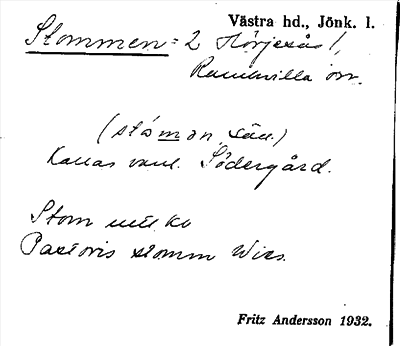 Västra hd., Jönk. l.
Stommen = 2 Hörjesås 1,
Rumskulla sn.
(ståman, sän.)
Kallas vanl. Södergård.
Stom
Pastoris stomm Wiss.
Fritz Andersson 1932.